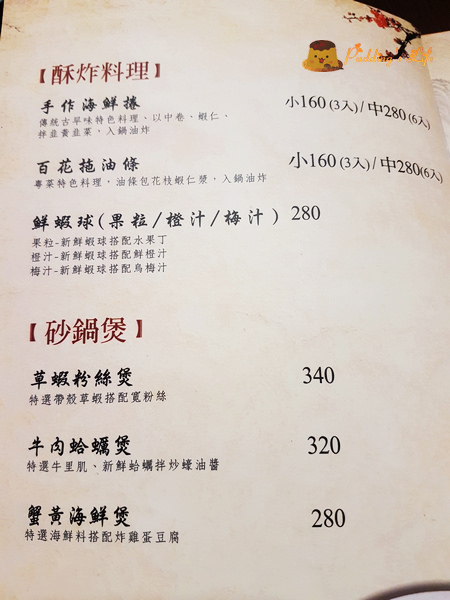 Pudding Life
【酥炸料理】
手作海鮮捲 小160(3入)/中280(6入)
傳統古早味特色料理、以中卷、蝦仁、
拌韭黃韭菜、入鍋油炸
百花拖油條 小160(3入)/中280(6入)
粵菜特色料理，油條包花枝蝦仁漿，入鍋油炸
鮮蝦球(果粒/橙汁/梅汁) 280
果粒-新鮮蝦球搭配水果丁
橙汁-新鮮蝦球搭配鮮橙汁
梅汁-新鮮蝦球搭配烏梅汁
【砂鍋煲】
草蝦粉絲煲 340
特選帶殼草蝦搭配寬粉絲
牛肉蛤蠣煲 320
特選牛里肌、新鮮蛤蠣拌炒蠔油醬
蟹黃海鮮煲 280
特選海鮮料搭配炸雞蛋豆腐